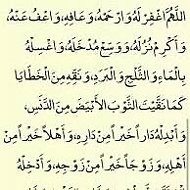 اللَّهُمَّ اغْفِرْ لَهُ وَارْحَمْهُ وَعَافِهِ، وَاعْفُ عَنْهُ،
وَأَكْرِمْ نُزُلَهُ وَوَسِّعْ مُدْخَلَهُ، وَاغْسِلْهُ
بِالْمَاءِ وَالثَّلْجِ وَالْبَرَدِ، وَنَقِّهِ مِنَ الْخَطَايَا
كَمَا نَقَّيْتَ الثَّوْبَ الْأَبْيَضَ مِنَ الدَّنَسِ،
وَأَبْدِلْهُ دَارًا خَيْرًا مِنْ دَارِهِ، وَأَهْلًا خَيْرًا مِنْ
أَهْلِهِ، وَزَوْجًا خَيْرًا مِنْ زَوْجِهِ، وَأَدْخِلْهُ